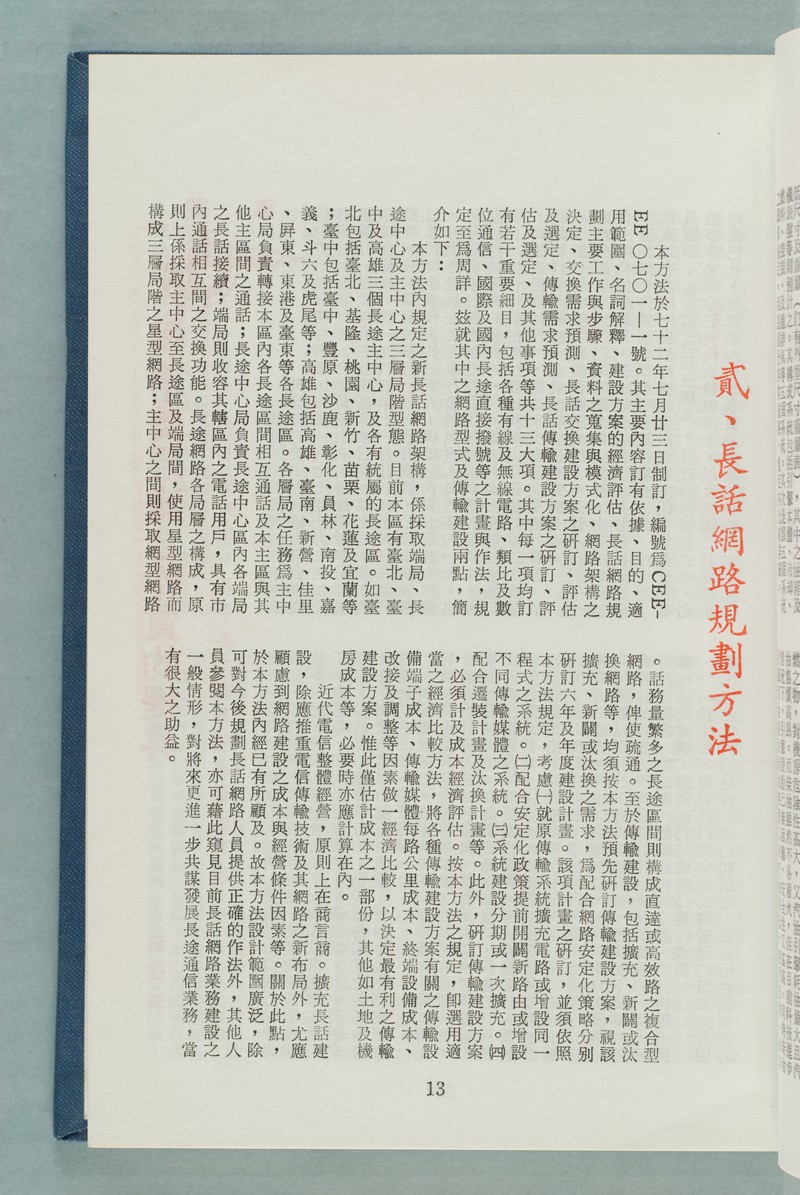 貳、長話網路規劃方法
本方法於七十二年七月廿三日制訂，編號為CEE-
EE 〇七〇一—一號。其主要內容訂有依據、目的、適
用範圍、名詞解釋、建設方案的經濟評估、長話網路規
劃主要工作與步驟、資料之蒐集與模式化、網路架構之
決定、交換需求預測、長話交換建設方案之研訂、評估
及選定、傳輸需求預測、長話傳輸建設方案之研訂、評
估及選定、及其他事項等共十三大項。其中每一項均訂
有若干重要細目，包括各種有線及無線電路、類比及數
位通信、國際及國內長途直接撥號等之計畫與作法，規
定至為周詳。茲就其中之網路型式及傳輸建設兩點，簡
介如下：
本方法內規定之新長話網路架構，係採取端局、長
途中心及主中心之三層局階型態。目前本區有臺北、臺
中及高雄三個長途主中心，及各有統屬的長途區。如臺
北包括臺北、基隆、桃園、新竹、苗栗、花蓮及宜蘭等
；臺中包括臺中、豐原、沙鹿、彰化、員林、南投、嘉
義、斗六及虎尾等；高雄包括高雄、臺南、新營、佳里
、屏東、東港及臺東等各長途區。各層局之任務為主中
心局負責轉接本區內各長途區間相互通話及本主區與其
他主區間之通話；長途中心局負責長途中心區內各端局
之長話接續；端局則收容其轄區內之電話用戶，具有市
內通話相互間之交換功能。長途網路各局層之構成，原
則上係採取主中心至長途區及端局間，使用星型網路而
構成三層局階之星型網路；主中心之間則採取網型網路
。話務量繁多之長途區間則構成直達或高效路之複合型
網路，俾使疏通。至於傳輸建設，包括擴充、新闢或汰
換網路等，均須按本方法預先研訂傳輸建設方案，視該
擴充、新闢或汰換之需求，為配合網路安定化策略分別
研訂六年及年度建設計畫。該項計畫之研訂，並須依照
本方法規定，考慮㈠就原傳輸系統擴充電路或增設同一
程式之系統。㈡配合安定化政策提前開闢新路由或增設
不同傳輸媒體之系統。㈢系統建設分期或一次擴充。㈣
配合遷裝計畫及汰換計畫等。此外，研訂傳輸建設方案
，必須計及成本經濟評估。按本方法之規定，即選用適
當之經濟比較方法，將各種傳輸建設方案有關之傳輸設
備端子成本、傳輸媒體每路公里成本、終端設備成本、
改接及調整等因素做一經濟比較，以決定最有利之傳輸
建設方案。惟此僅估計成本之一部份，其他如土地及機
房成本等，必要時亦應計算在內。
近代電信整體經營，原則上在商言商。擴充長話建
設，除應推重電信傳輸技術及其網路之新布局外，尤應
顧慮到網路建設之成本與經營條件因素等。關於此點，
於本方法內經已有所顧及。故本方法設計範圍廣泛，除
可對今後規劃長話網路人員提供正確的作法外，其他人
員參閱本方法，亦可藉此窺見目前長話網路業務建設之
一般情形，對將來更進一步共謀發展長途通信業務，當
有很大之助益。
13